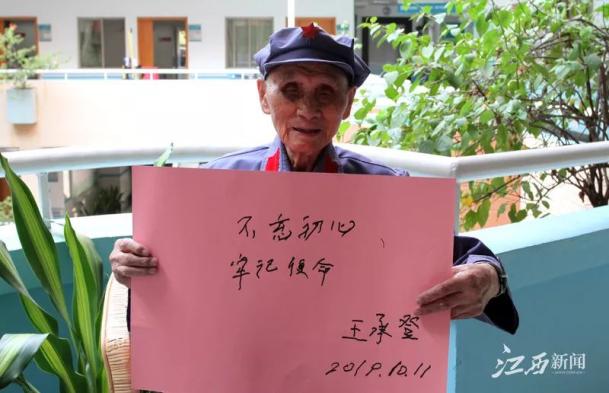 不忘初心、
牢记使命
王承登
2019.10.11
江西新闻